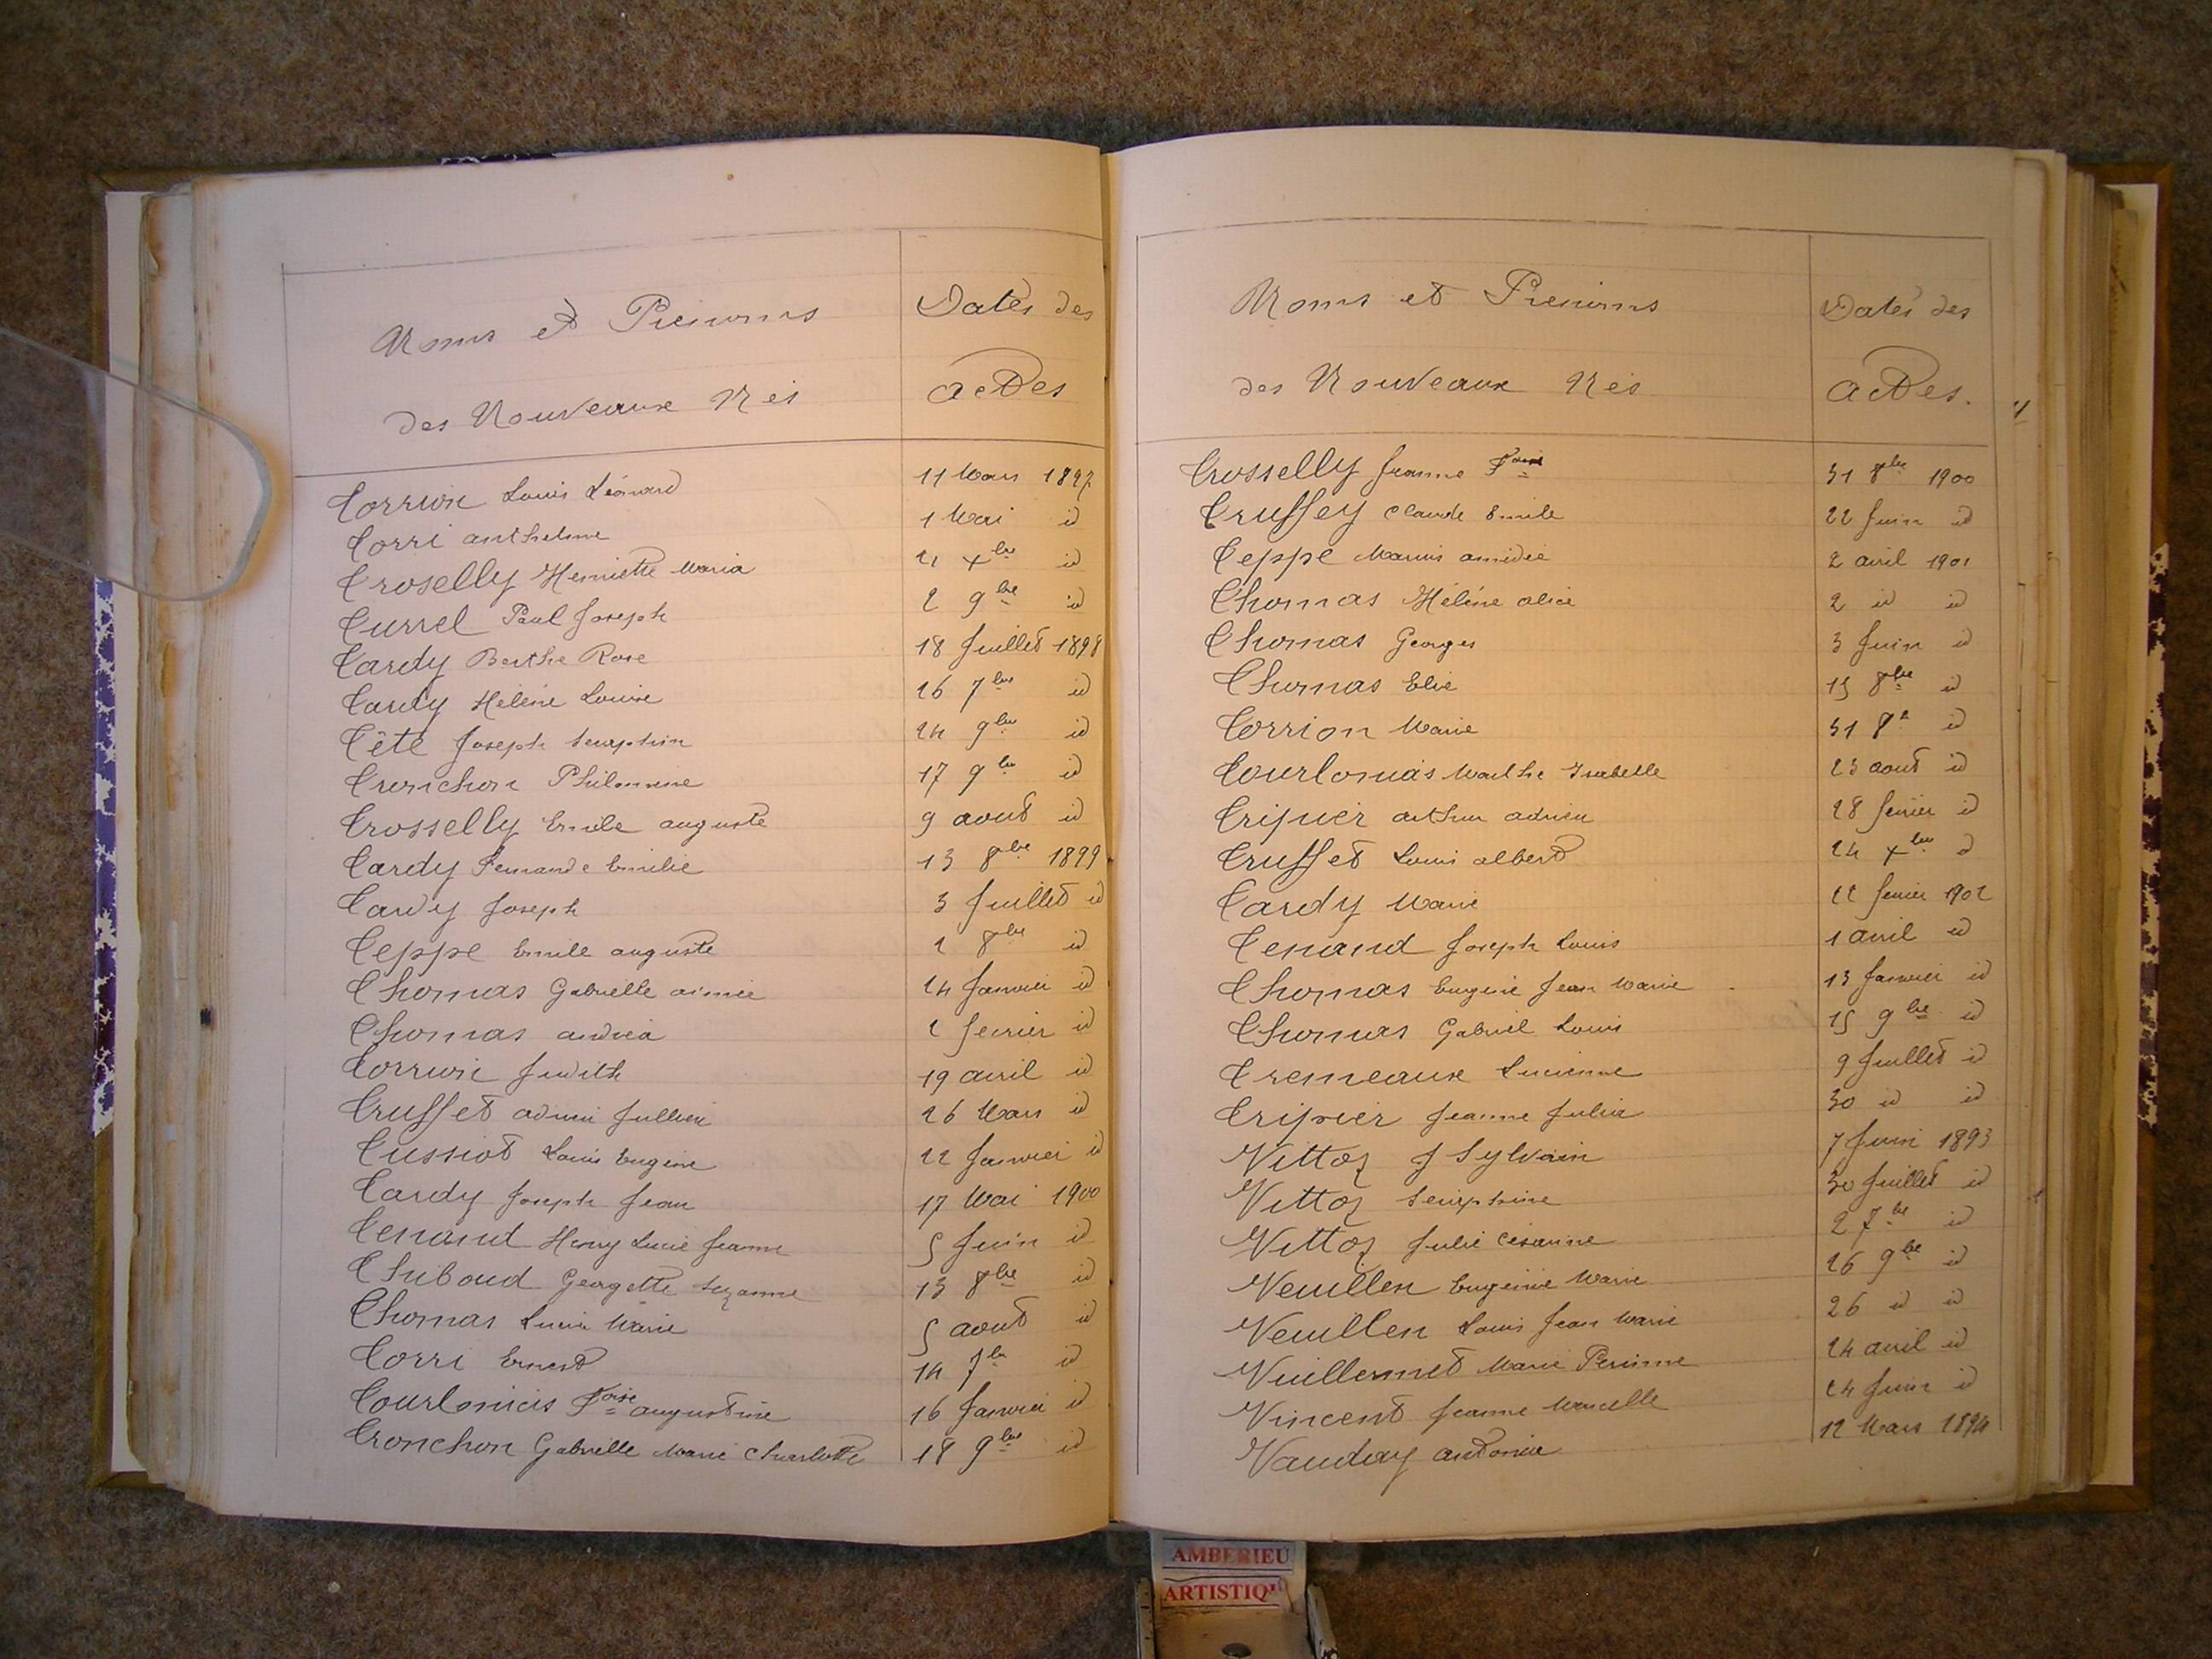 Noms et Prenoms
des Nouveaux Nés
Dates des
actes
Torrion Louis Léonard 11 Mars 1897
Torri anthelme 1 Mai id
Troselly Henriette Maria 21 xbre id
Turrel Paul Joseph 2 9bre id
Tardy Berthe Rose 18 Juillet 1898
Tardy Hélène Louise 26 7bre id
Tête Joseph Seraphin 24 9bre id
Tronchon Philomène 17 9bre id
Trosselly Emile auguste 9 aout id
Tardy Fernande Emilie 13 8bre 1899
Tardy Joseph 3 Juillet id
Teppe Emile auguste 2 8bre id
Thomas Gabrielle aimée 24 Janvier id
Thomas andréa 2 fevrier id
Torrion Judith 19 avril id
Truffet Jullien 26 Mars id
Tussiot Louis Eugène 22 Janvier id
Tardy Joseph Jean 17 Mai 1900
Tenand Henry Lucie Jeanne 5 Juin id
Thiboud Georgette Suzanne 13 8bre id
Thomas Marie 5 aout id
Torri Ernest 14 7bre id
Foise augustine 16 Janvier id
Tronchon Gabrielle Marie Charlotte 18 9bre id
Noms et Prenoms
des Nouveaux Nés
Dates des
actes.
Trosselly Jeanne 31 8bre 1900
Truffey Claude Emile 22 Juin id
Teppe Marius amédée 2 avril 1901
Thomas Hélène alice 2 id id
Thomas Georges 3 Juin id
Thomas Elie 15 8bre id
Torrion Marie 31 8e id
Marthe Isabelle 23 aout id
Tripier arthur adrien 28 fevrier id
Truffet Louis albert 24 xbre id
Tardy Marie 22 fevrier 1902
Tenand Joseph Louis 1 avril id
Thomas Eugène Jean Marie 13 Janvier id
Thomas Gabriel Louis 15 9bre id
Tremeaux Lucienne 9 Juillet id
Tripier Jeanne Julia 30 id id
Vittoz J Sylvain 7 Juin 1893
Vittoz Seraphine 30 Juillet id
Vittoz Julie Césarine 2 7bre id
Veuillen Eugénie Marie 26 9bre id
Veuillen Louis Jean Marie 26 id id
Vuillermet Marie Perinne 24 avril id
Vincent Jeanne Marcelle 24 Juin id
Vauday antonia 12 Mars 1894
AMBERIEU
ARTISTIQU